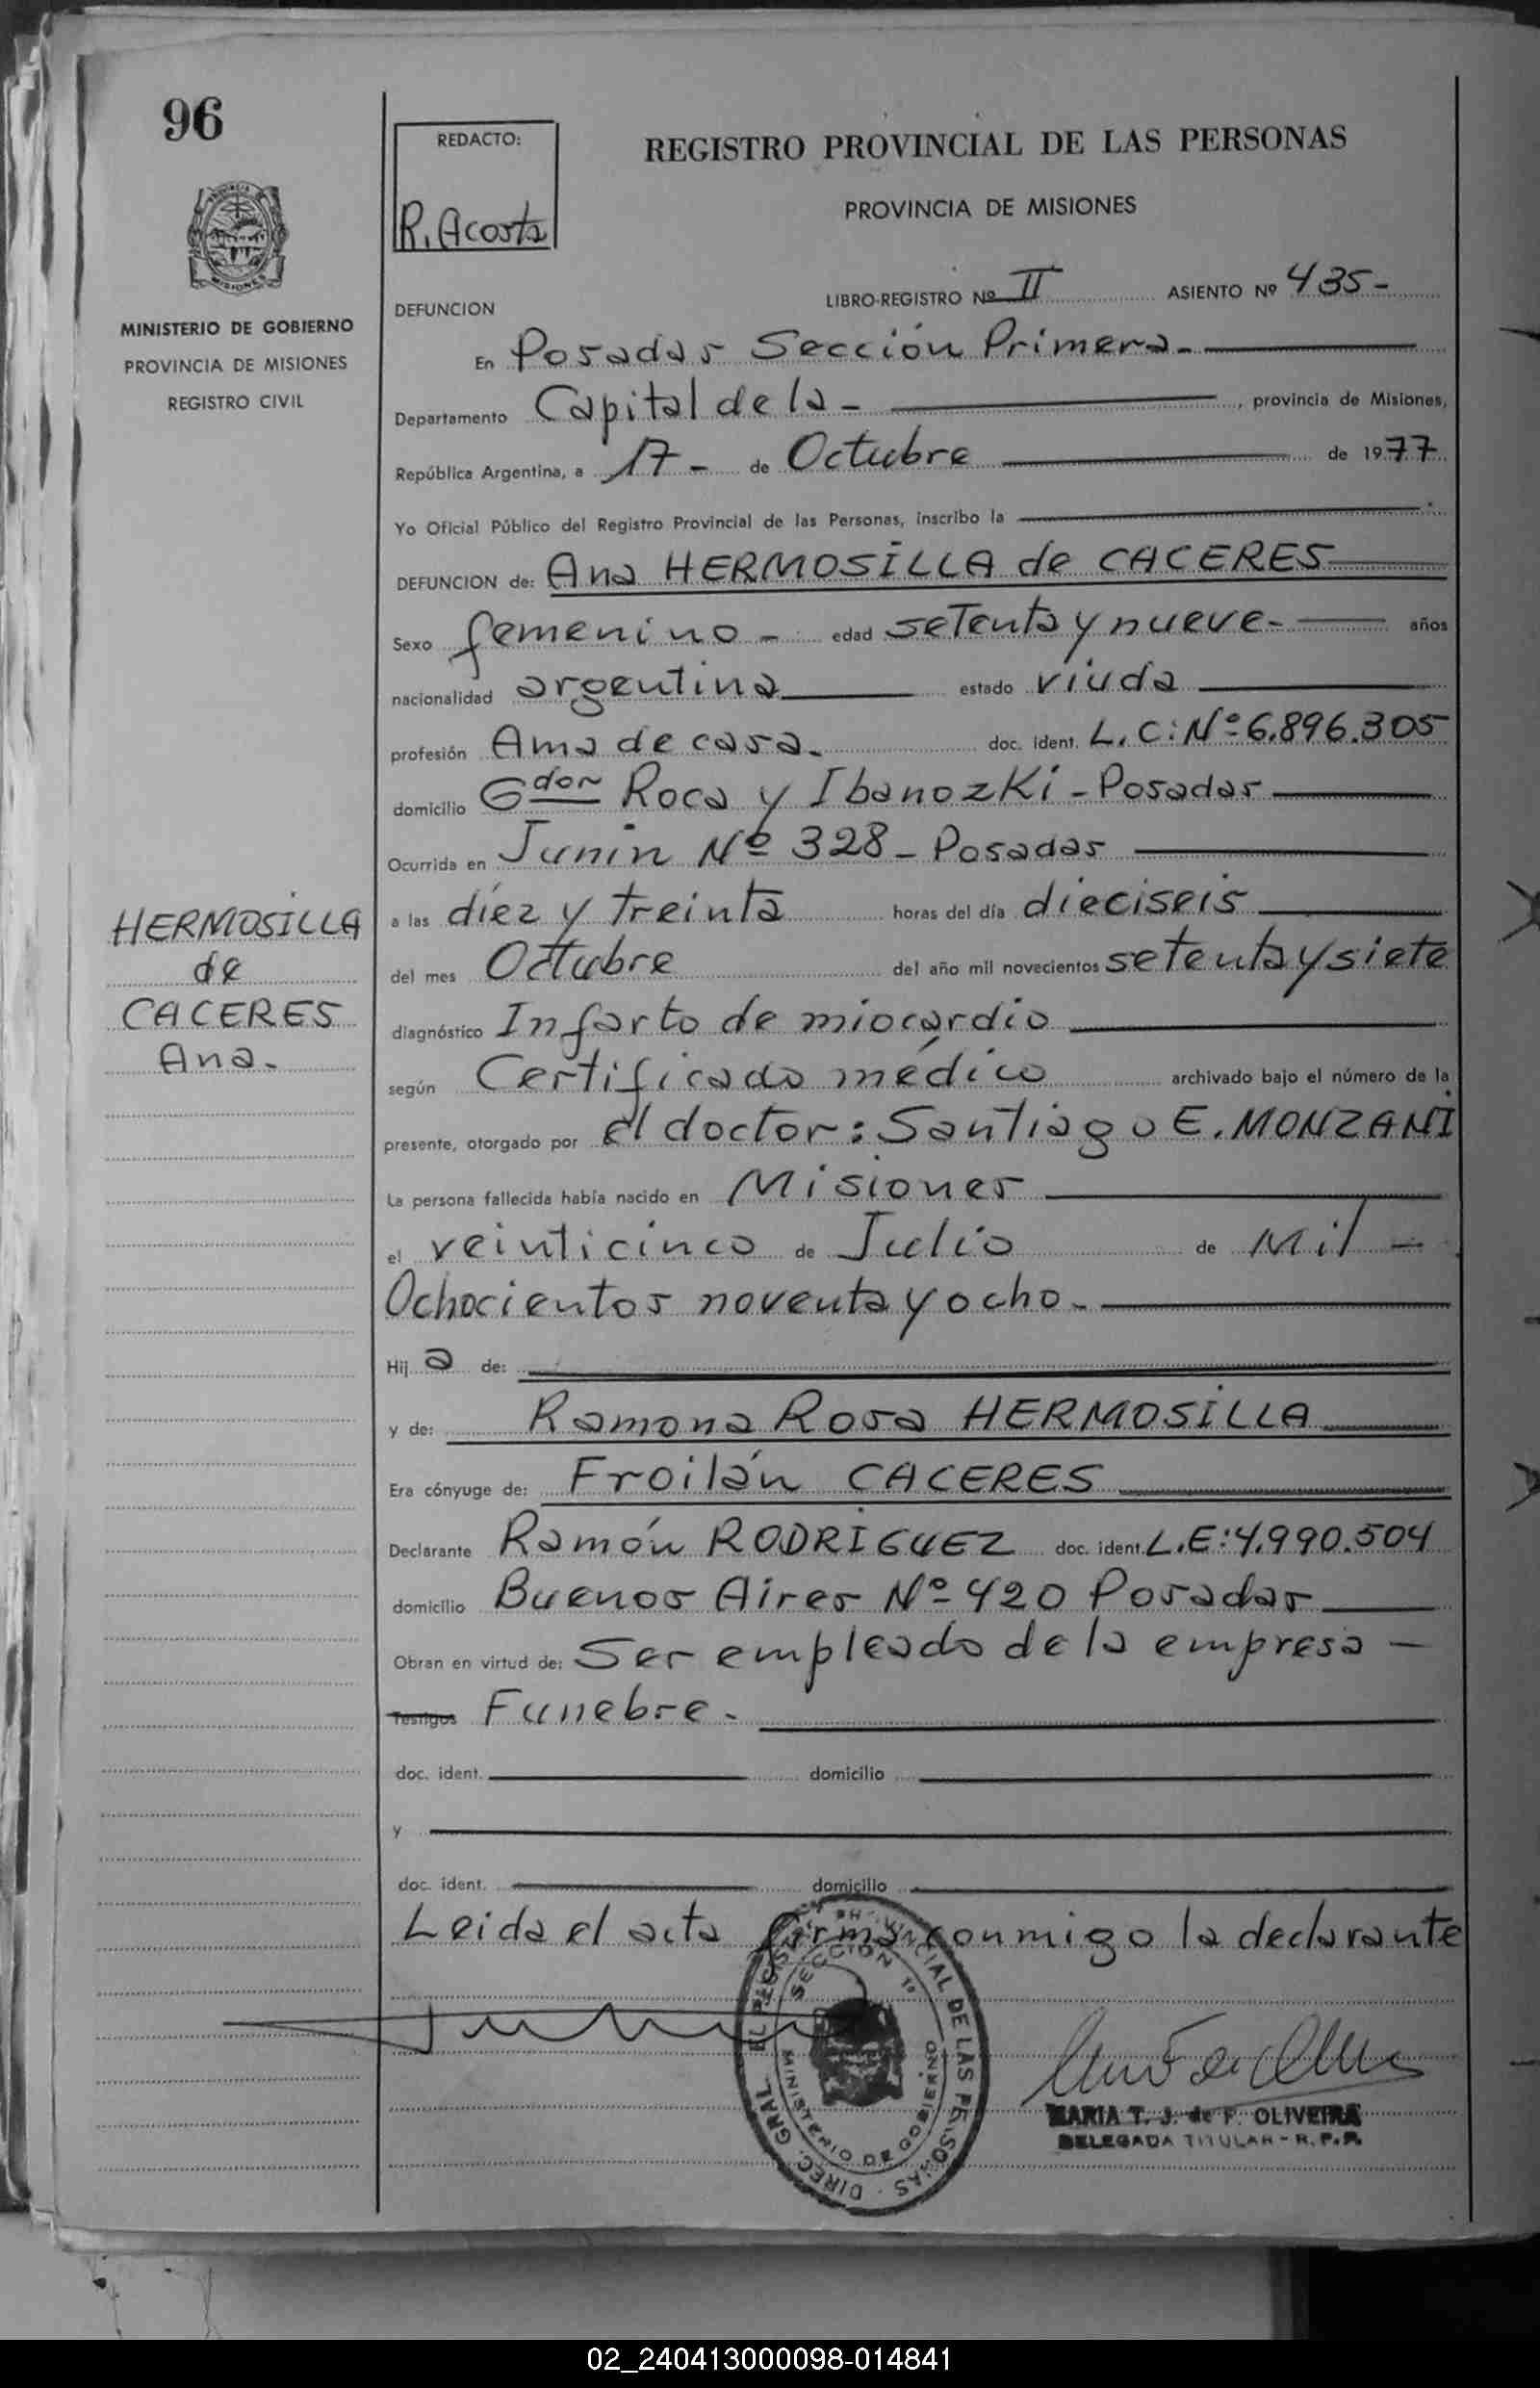 96
REDACTO:
R. Acosta
REGISTRO PROVINCIAL DE LAS PERSONAS
PROVINCIA DE MISIONES
MINISTERIO DE GOBIERNO
PROVINCIA DE MISIONES
REGISTRO CIVIL
DEFUNCION
LIBRO-REGISTRO Nº II ASIENTO Nº 435-
En Posadas Sección Primera-
Departamento Capital de la - , provincia de Misiones,
República Argentina, a 17- de Octubre de 1977
Yo Oficial Público del Registro Provincial de las Personas, inscribo la
DEFUNCION de: Ana HERMOSILLA de CACERES
Sexo femenino - edad setenta y nueve- años
nacionalidad argentina estado viuda
profesión Ama de casa. doc. ident. L.C: Nº 6.896.305
domicilio Gdor Roca y Ibanozki - Posadas
Ocurrida en Junin Nº 328 - Posadas
a las diez y treinta horas del día dieciseis
del mes Octubre del año mil novecientos setenta y siete
diagnóstico Infarto de miocardio
según Certificado médico archivado bajo el número de la
presente, otorgado por el doctor: Santiago E. MONZANI
La persona fallecida había nacido en Misiones
el veinticinco de Julio de Mil -
Ochocientos noventa y ocho-
Hij a de:
y de: Ramona Rosa HERMOSILLA
Era cónyuge de: Froilán CACERES
Declarante Ramón RODRIGUEZ doc. ident. L.E: 4.990.504
domicilio Buenos Aires Nº 420 Posadas
Obran en virtud de: Ser empleado de la empresa -
Testigos Funebre.
doc. ident. domicilio
y
doc. ident. domicilio
Leida el acta firma conmigo la declarante
HERMOSILLA
de
CACERES
Ana.
DIREC. GRAL. DEL REGISTRO PROVINCIAL DE LAS PERSONAS
SECCION 1º
MINISTERIO DE GOBIERNO
MARIA T. J. de F. OLIVEIRA
DELEGADA TITULAR - R. P. P.
02_240413000098-014841